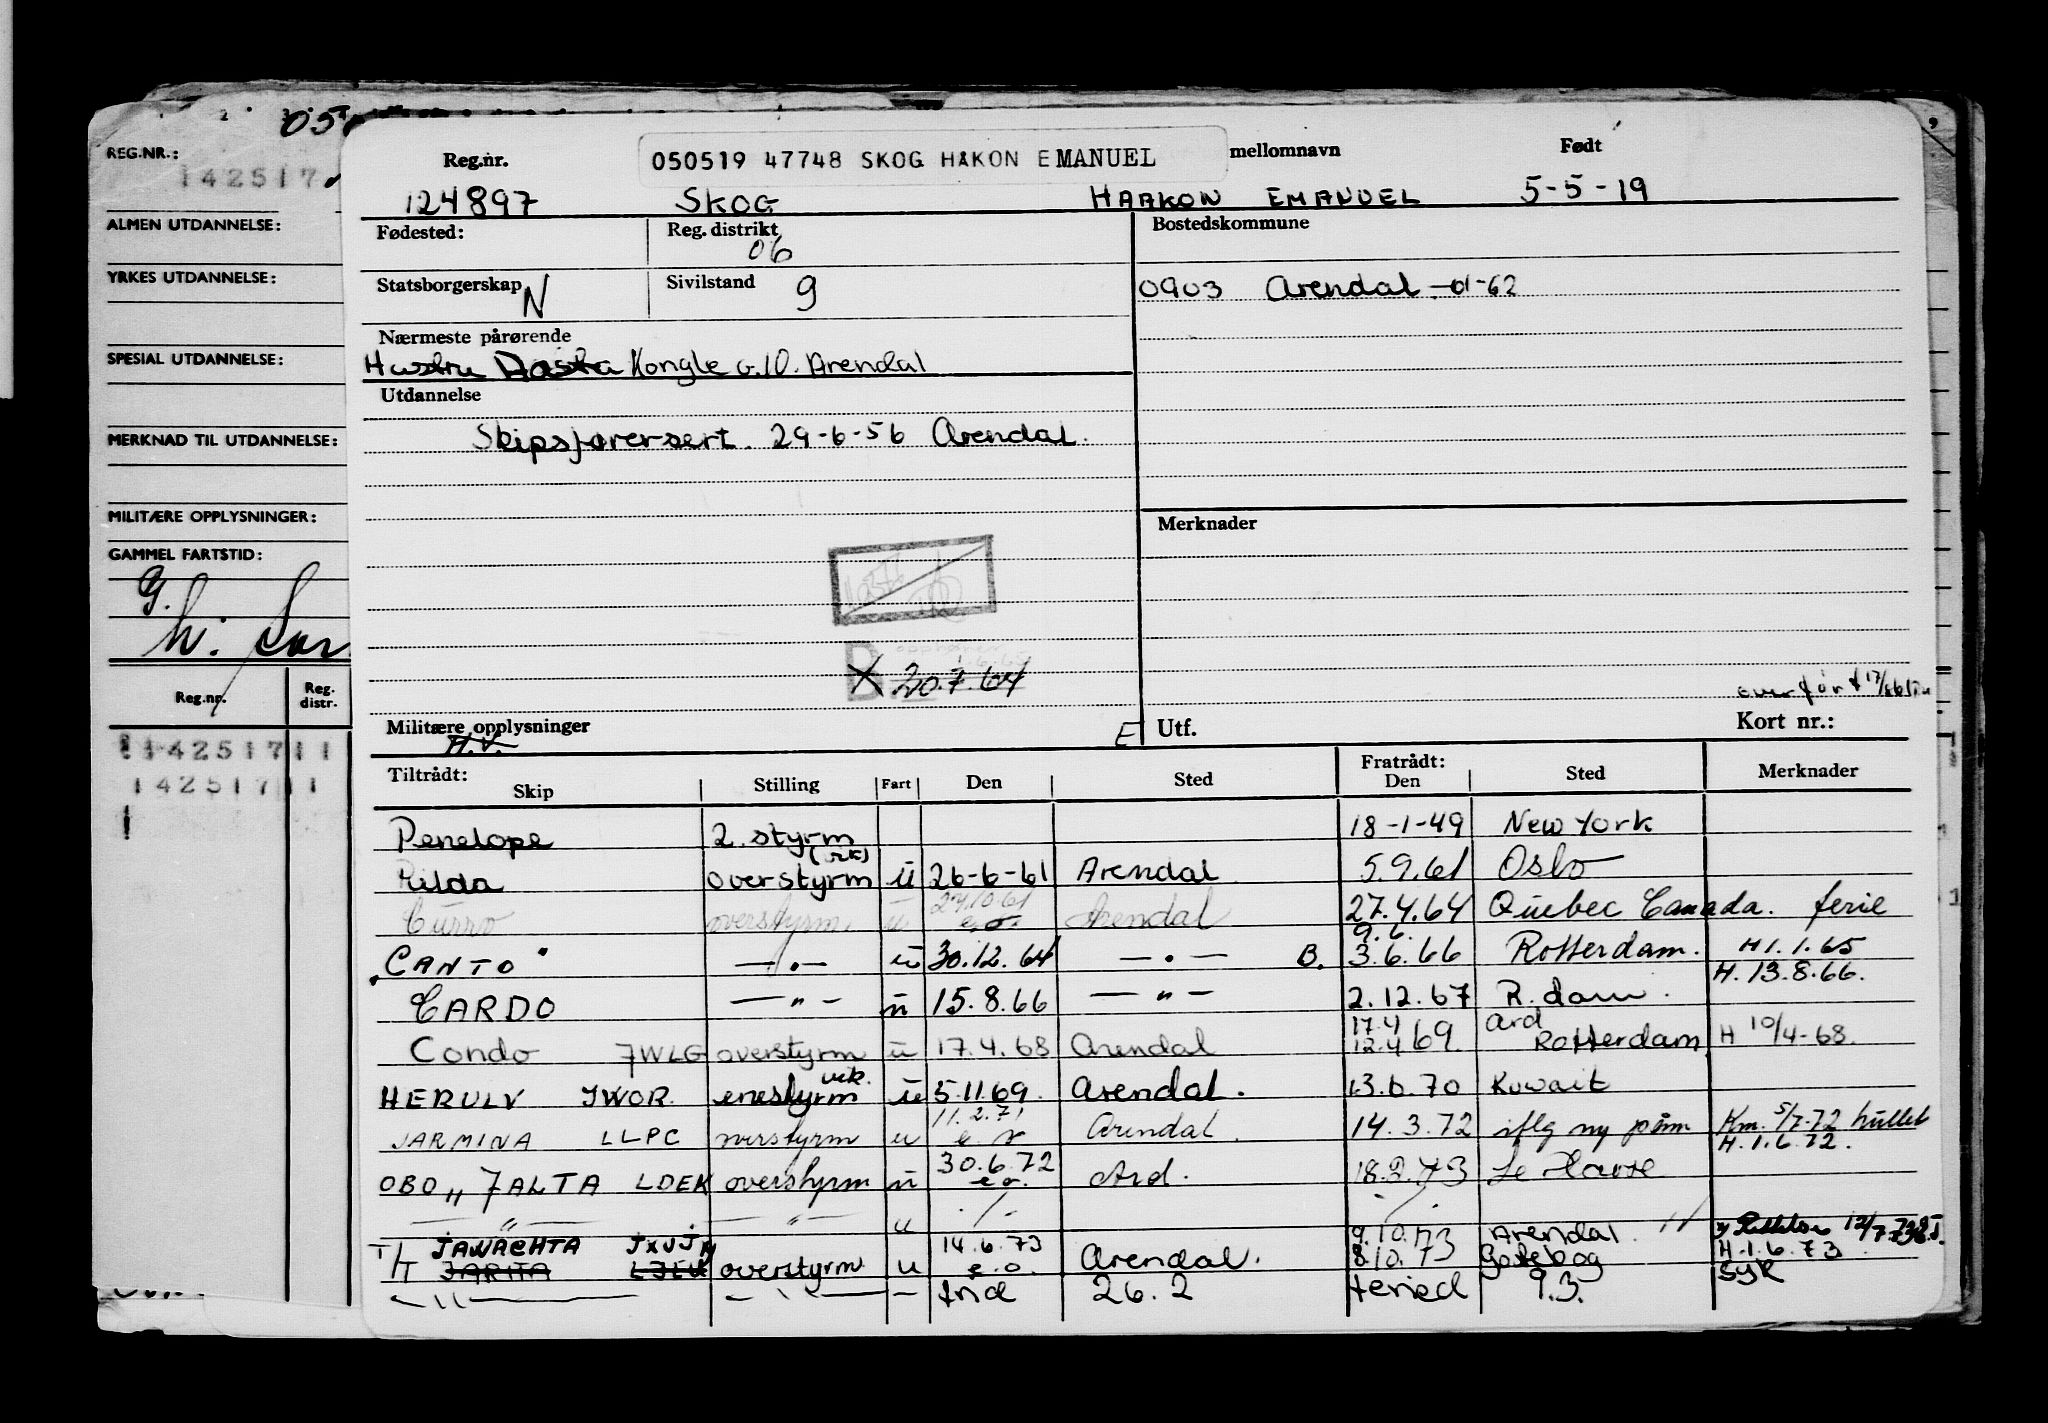 REG.NR.:
142517
ALMEN UTDANNELSE:
YRKES UTDANNELSE:
SPESIAL UTDANNELSE:
MERKNAD TIL UTDANNELSE:
MILITÆRE OPPLYSNINGER:
GAMMEL FARTSTID:
G.
Reg.nr. Reg. distr.
142517 11
142517 11
Reg.nr. 050519 47748 SKOG HÅKON EMANUEL mellomnavn Født
124897 SKOG HAAKON EMANUEL 5-5-19
Fødested: Reg. distrikt 06 Bostedskommune
Statsborgerskap N Sivilstand 9 0903 Arendal 01-62
Nærmeste pårørende
Hustru Kongle v.10. Arendal
Utdannelse
Skipsførersert. 29-6-56 Arendal.
Merknader
20.7.64
overført
Militære opplysninger E Utf. Kort nr.:
H.V.
Tiltrådt: Fratrådt:
Skip Stilling Fart Den Sted Den Sted Merknader
Penelope 2. styrm 18-1-49 New York
Rilda overstyrm ü 26-6-61 Arendal 5.9.61 Oslo
Curro overstyrm. u 27.10.61 e.o. Arendal 27.4.64 Quebec Canada. ferie
"CANTO" —.— ü 30.12.64 —.— B. 9.6. 3.6.66 Rotterdam. H1.1.65
H. 13.8.66.
CARDO —"— ü 15.8.66 —"— 2.12.67 R.dam.
Condo JWLG overstyrm ü 17.4.68 Arendal 17.4 12.4 69. Ard Rotterdam H 10/4-68.
HERULV JWOR. enestyrm vik. ü 5.11.69. Arendal. 13.6.70 Kuwait
JARMINA LLPC overstyrm u 11.2.71 Arendal. 14.3.72 iflg ny påm Km. 5/7-72 hullet
H.1.6.72.
OBO "JALTA LDEK overstyrm ü 30.6.72 e.o. Ard. 18.2.73 Le Havre
—"— —"— u ./-
T/T JAWACHTA 14.6.73 9.10.73 Arendal
JARITA overstyrm u e.o. Arendal. 8.10.73 H.1.6.73
—"— —"— — frid 26.2 feried 9.3. syk